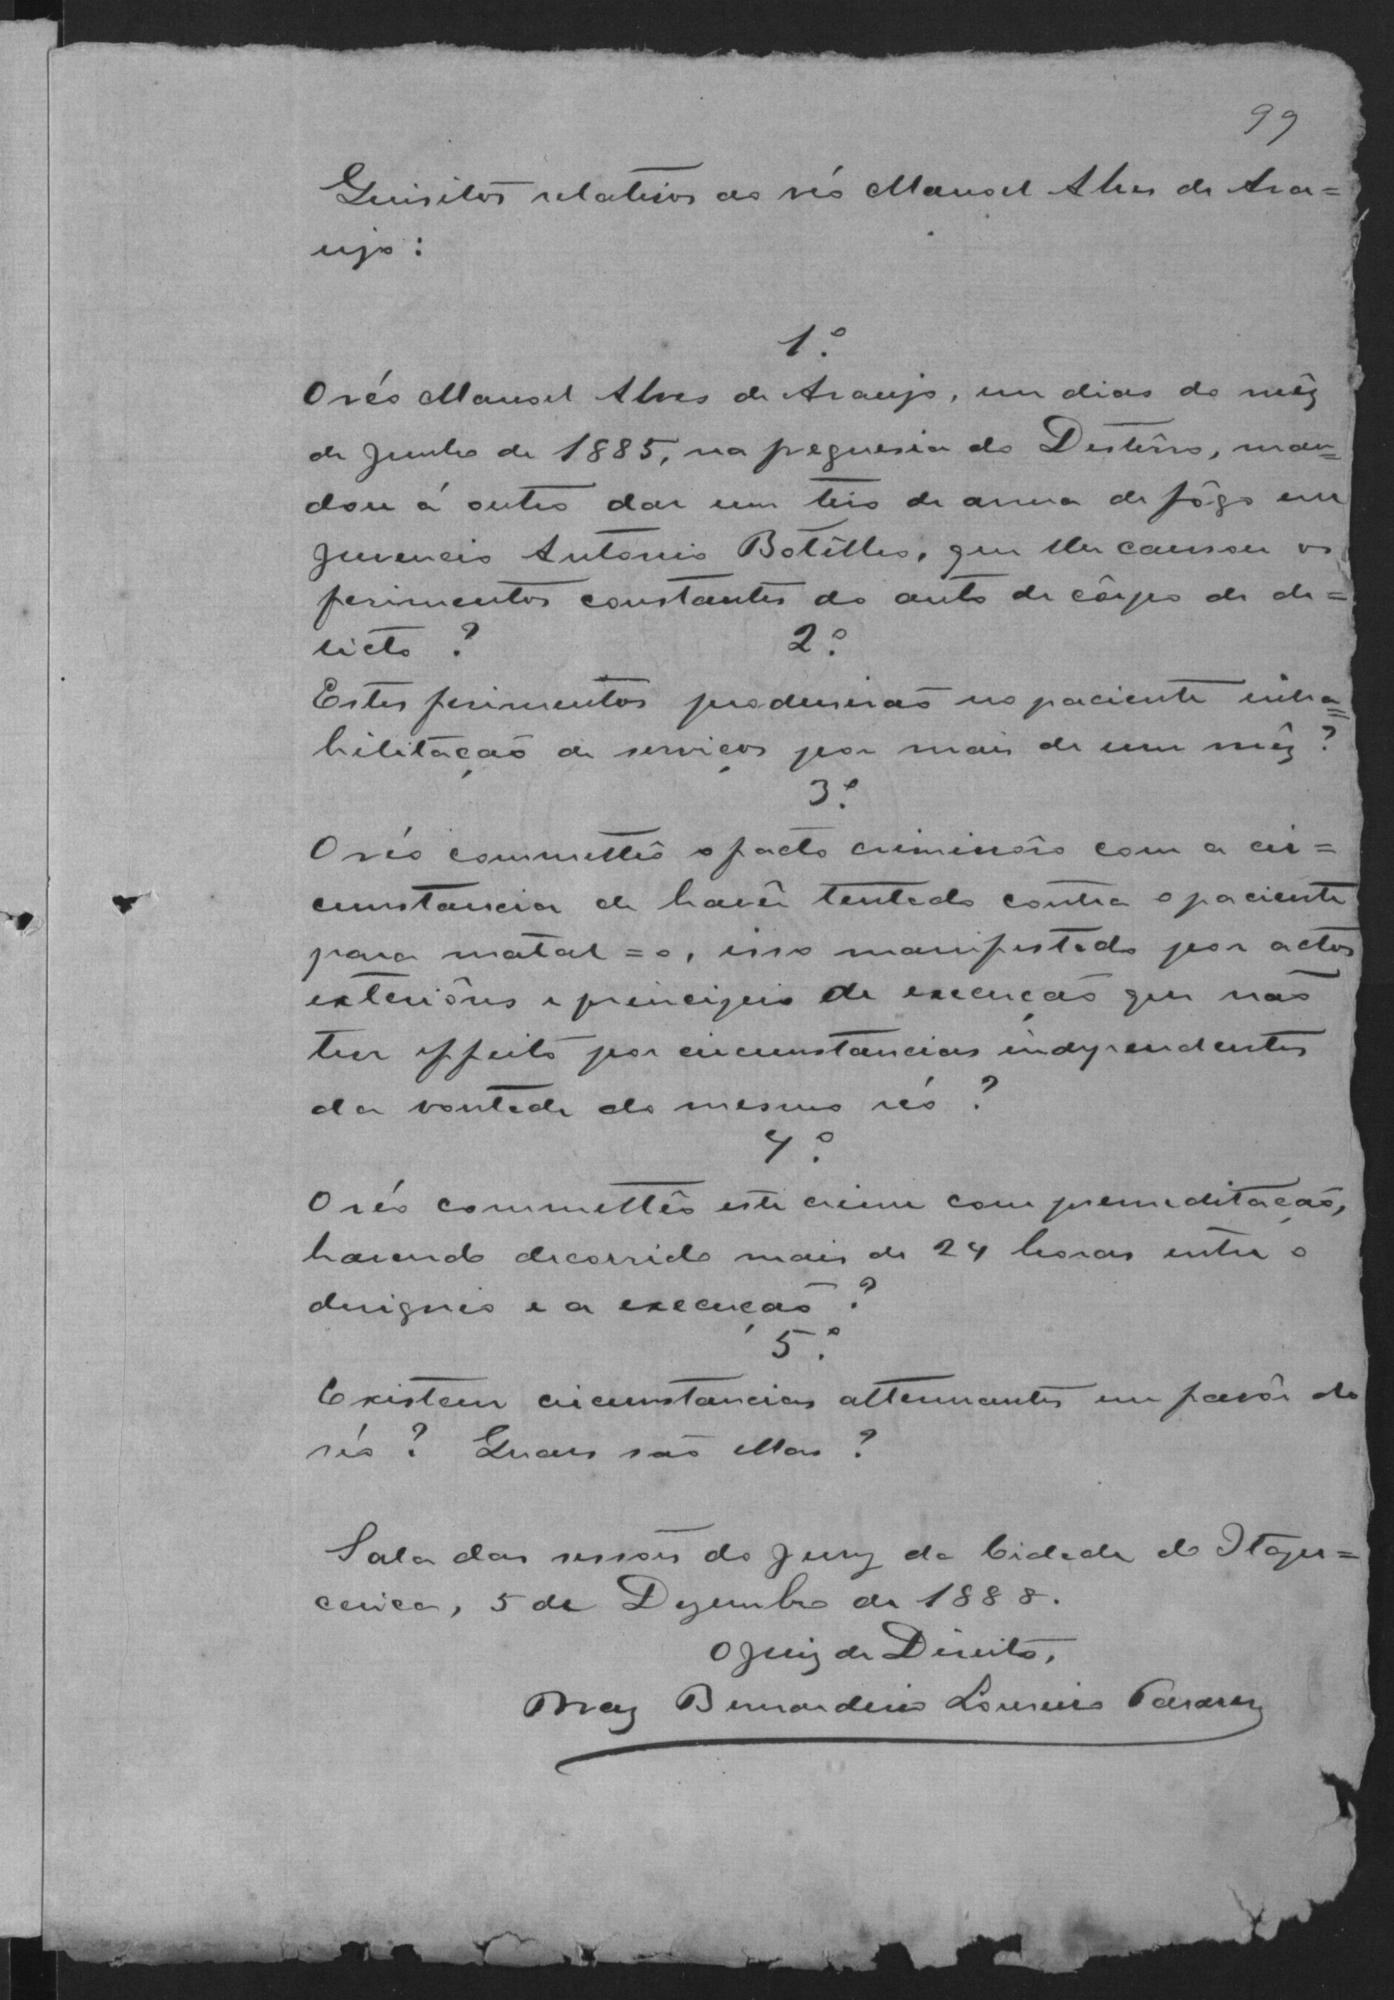 99
Quisitos relativos ao réo Manoel Alves de Ara=
ujo:
1º.
O réo Manoel Alves de Araujo, em dias do mêz
de Junho de 1885, na freguesia do Destêrro, man=
dou á outro dar um tiro de arma de fôgo em
Juvencio Antonio Botêlho, que lhe causou os
ferimentos constantes do auto de côrpo de de=
licto? 2º.
Estes ferimentos produsirão no paciente inha=
bilitação de serviços por mais de um mêz?
3º.
O réo commettêo o facto criminôso com a cir=
cumstancia de havêr tentado contra o paciente
para matal=o, isso manifestado por actos
exteriôres e principio de execução que não
teve effeito por circumstancias independentes
da vontade do mesmo réo?
4º.
O réo commettêo este crime com premeditação,
havendo decorrido mais de 24 horas entre o
designio e a execução?
5º.
Existem circumstancias attenuantes em favôr do
réo? Quaes são ellas?
Sala das sessões do Jury da Cidade de Itape=
cerica, 5 de Dezembro de 1888.
O Juiz de Direito,
Braz Bernardino Loureiro Tavares